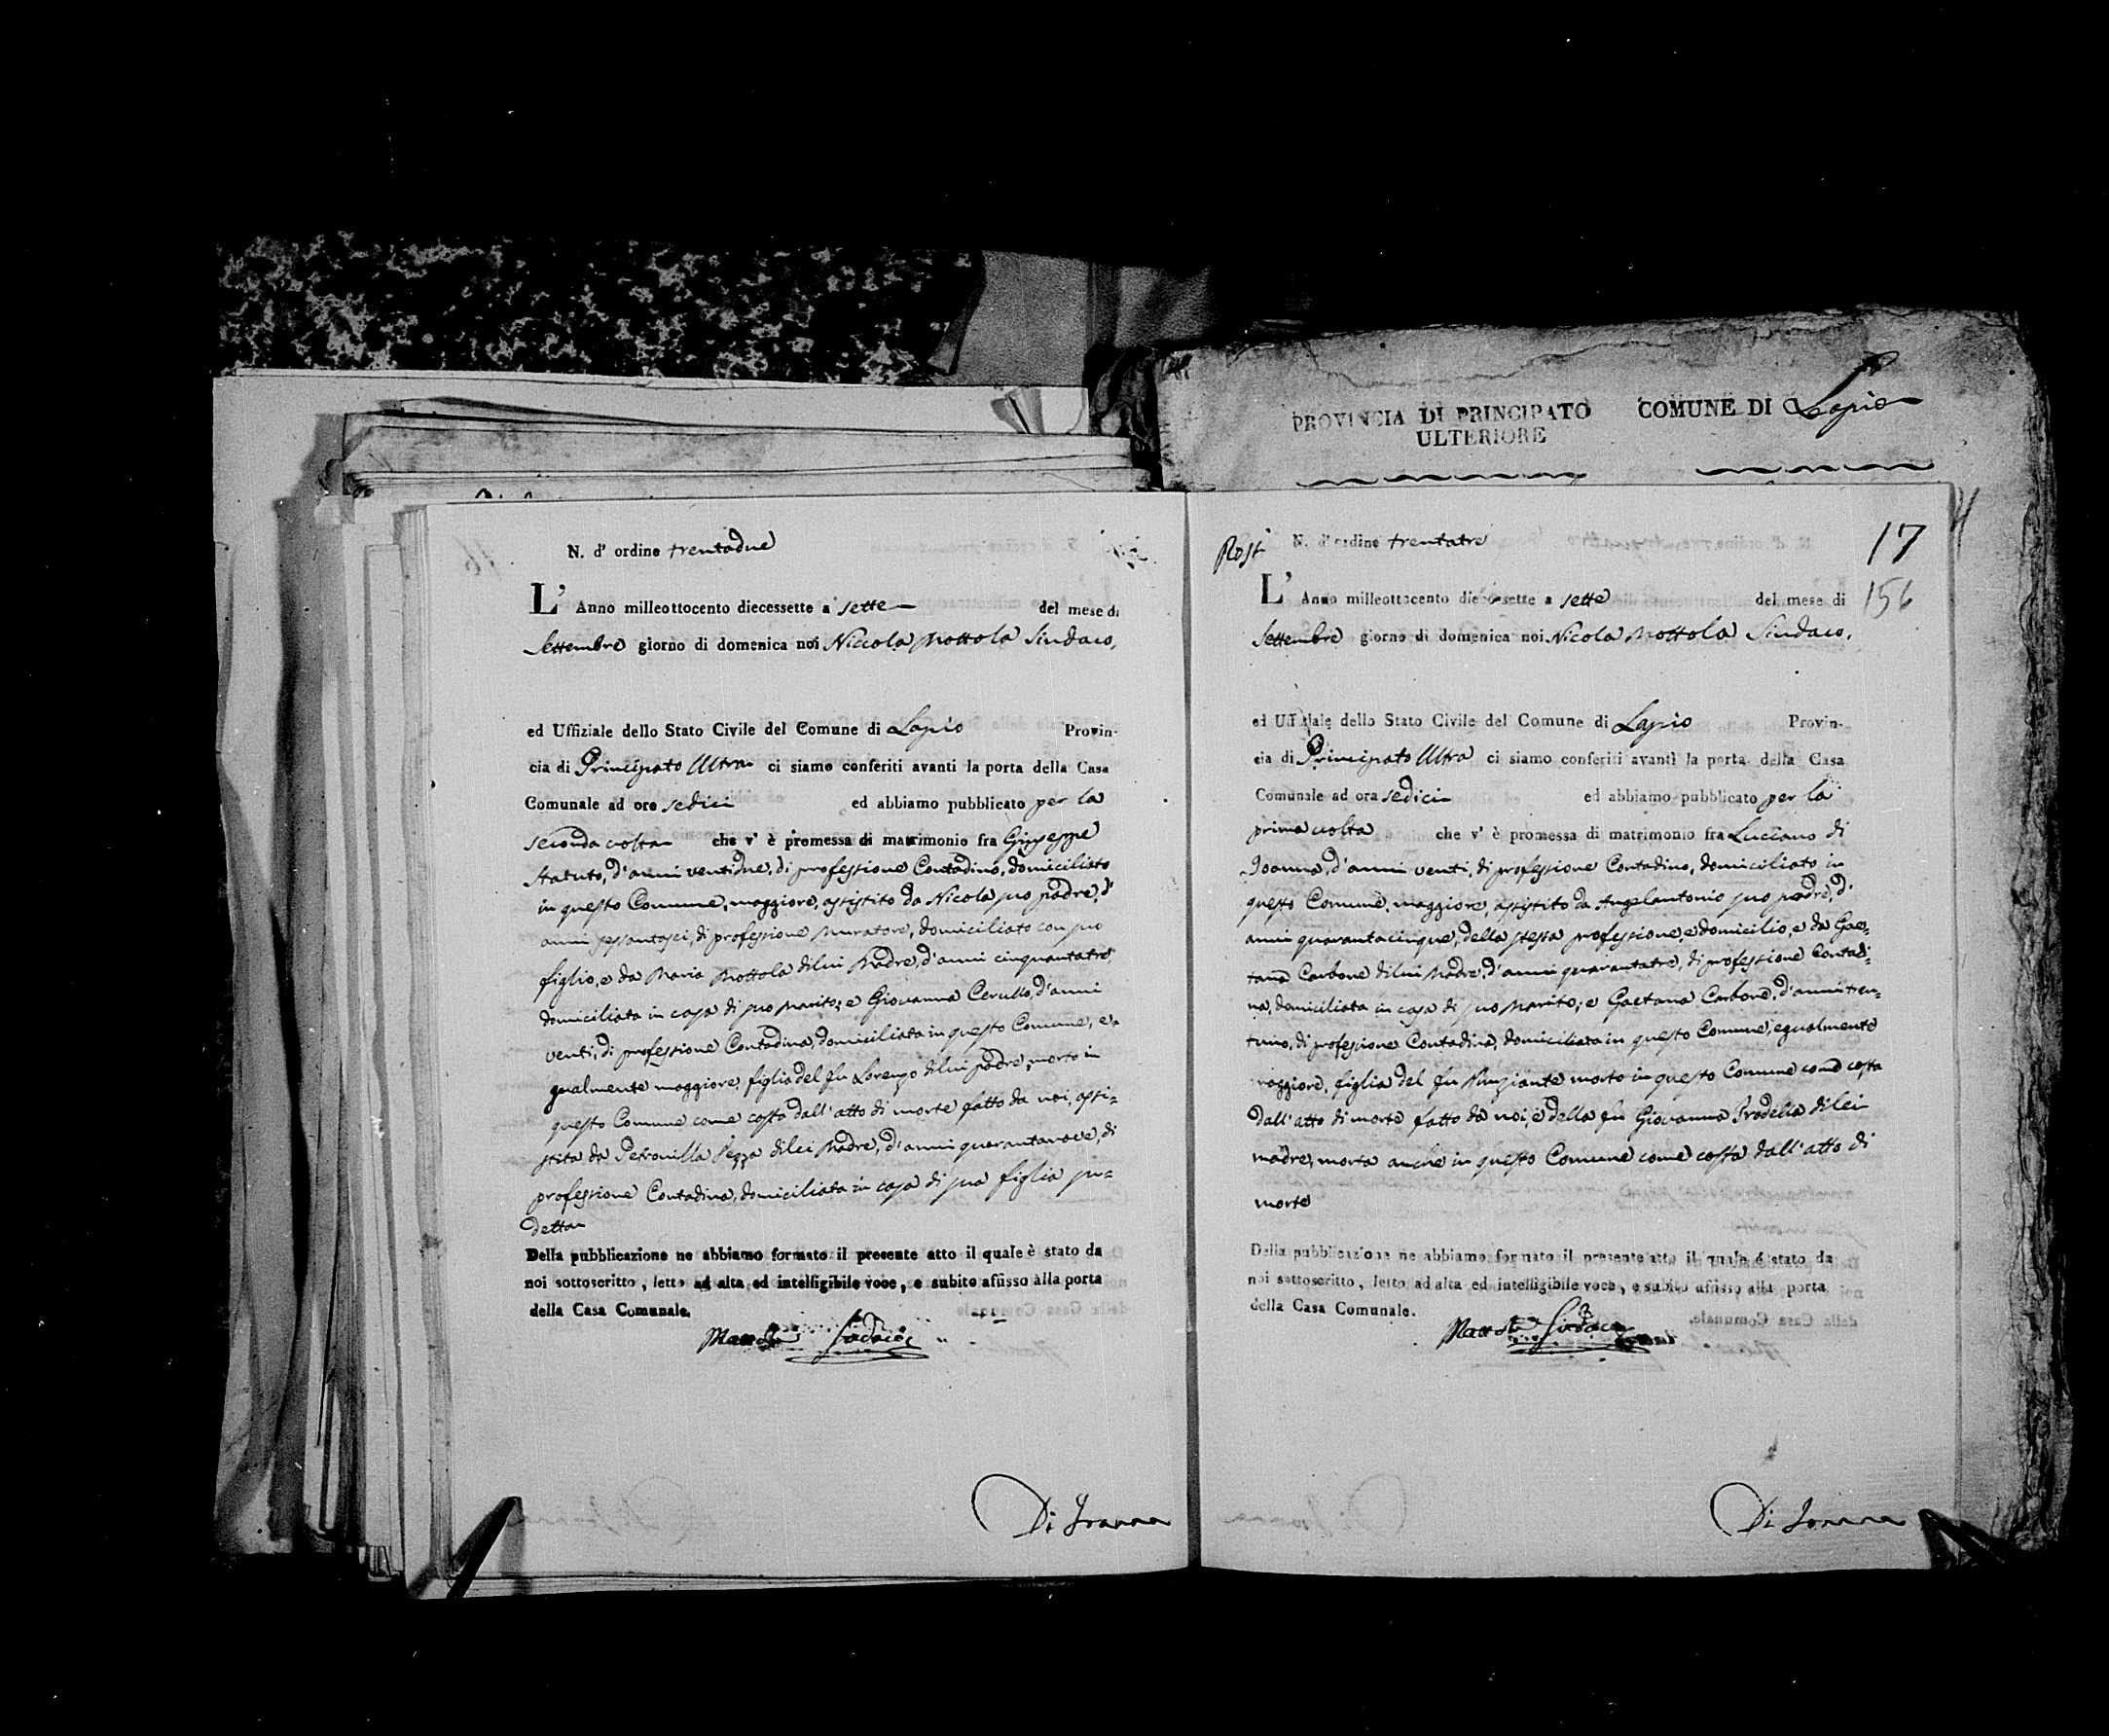 PROVINCIA DI PRINCIPATO
ULTERIORE
COMUNE DI Lapio
N. d' ordine trentadue
L' Anno milleottocento diecessette a sette del mese di
Settembre giorno di domenica noi Niccola Mottola Sindaco,
ed Uffiziale dello Stato Civile del Comune di Lapio Provin-
cia di Principato Ultra ci siamo conferiti avanti la porta della Casa
Comunale ad ore sedici ed abbiamo pubblicato per la
seconda volta che v' è promessa di matrimonio fra Giuseppe
Statuto, d'anni ventidue, di professione Contadino, domiciliato
in questo Comune, maggiore, assistito da Nicola suo padre, d'
anni sessantasei, di professione Muratore, domiciliato con suo
figlio, e da Maria Mottola di lui Madre, d'anni cinquantatre,
domiciliata in casa di suo Marito; e Giovanna Cerullo, d'anni
venti, di professione Contadina, domiciliata in questo Comune, e-
gualmente maggiore, figlia del fu Lorenzo di lui padre, morto in
questo Comune come costa dall'atto di morte fatto da noi, assi-
stita da Petronilla Pezza di lei Madre, d'anni quarantanove, di
professione Contadina, domiciliata in casa di sua figlia su-
detta
Della pubblicazione ne abbiamo formato il presente atto il quale è stato da
noi sottoscritto, letto ad alta ed intelligibile voce, e subito affisso alla porta
della Casa Comunale.
Sindaco
Di Joanna
Post
N. d' ordine trentatre
17
156
L' Anno milleottocento diecessette a sette del mese di
Settembre giorno di domenica noi Nicola Mottola Sindaco,
ed Uffiziale dello Stato Civile del Comune di Lapio Provin-
cia di Principato Ultra ci siamo conferiti avanti la porta della Casa
Comunale ad ora sedici ed abbiamo pubblicato per la
prima volta che v' è promessa di matrimonio fra Luciano di
Joanna, d'anni venti, di professione Contadino, domiciliato in
questo Comune, maggiore, assistito da Angelantonio suo padre, d'
anni quarantacinque, della stessa professione, e domicilio, e da Gae-
tana Carbone di lui Madre, d'anni quarantatre, di professione Contadi-
na, domiciliata in casa di suo Marito; e Gaetana Carbone, d'anni tren-
tuno, di professione Contadina, domiciliata in questo Comune, egualmente
maggiore, figlia del fu Nunziante morto in questo Comune come costa
dall'atto di morte fatto da noi, e della fu Giovanna Trodella di lei
madre, morta anche in questo Comune come costa dall'atto di
morte
Della pubblicazione ne abbiamo formato il presente atto il quale è stato da
noi sottoscritto, letto ad alta ed intelligibile voce, e subito affisso alla porta
della Casa Comunale.
Sindaco
Di Joanna